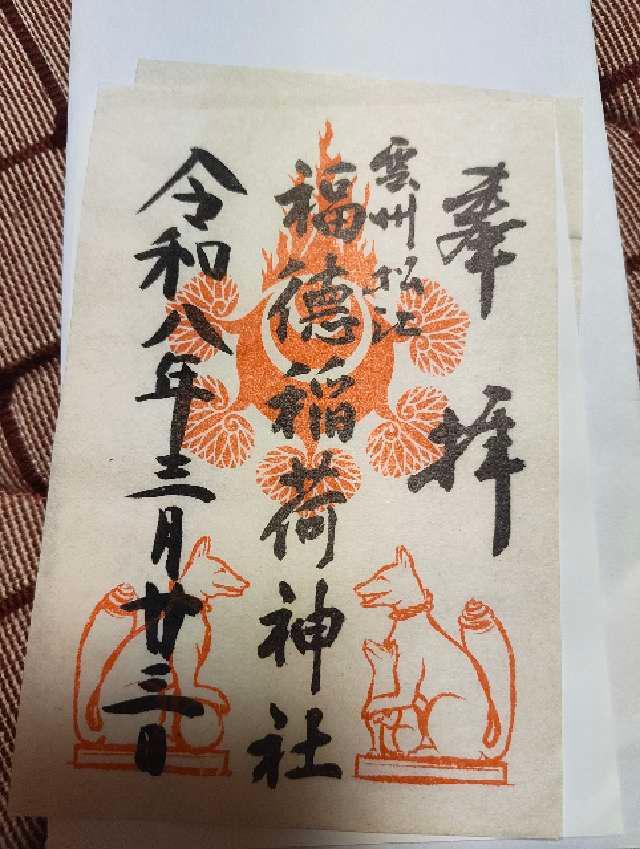 奉拝
雲州松江
福徳稲荷神社
令和八年三月廿三日